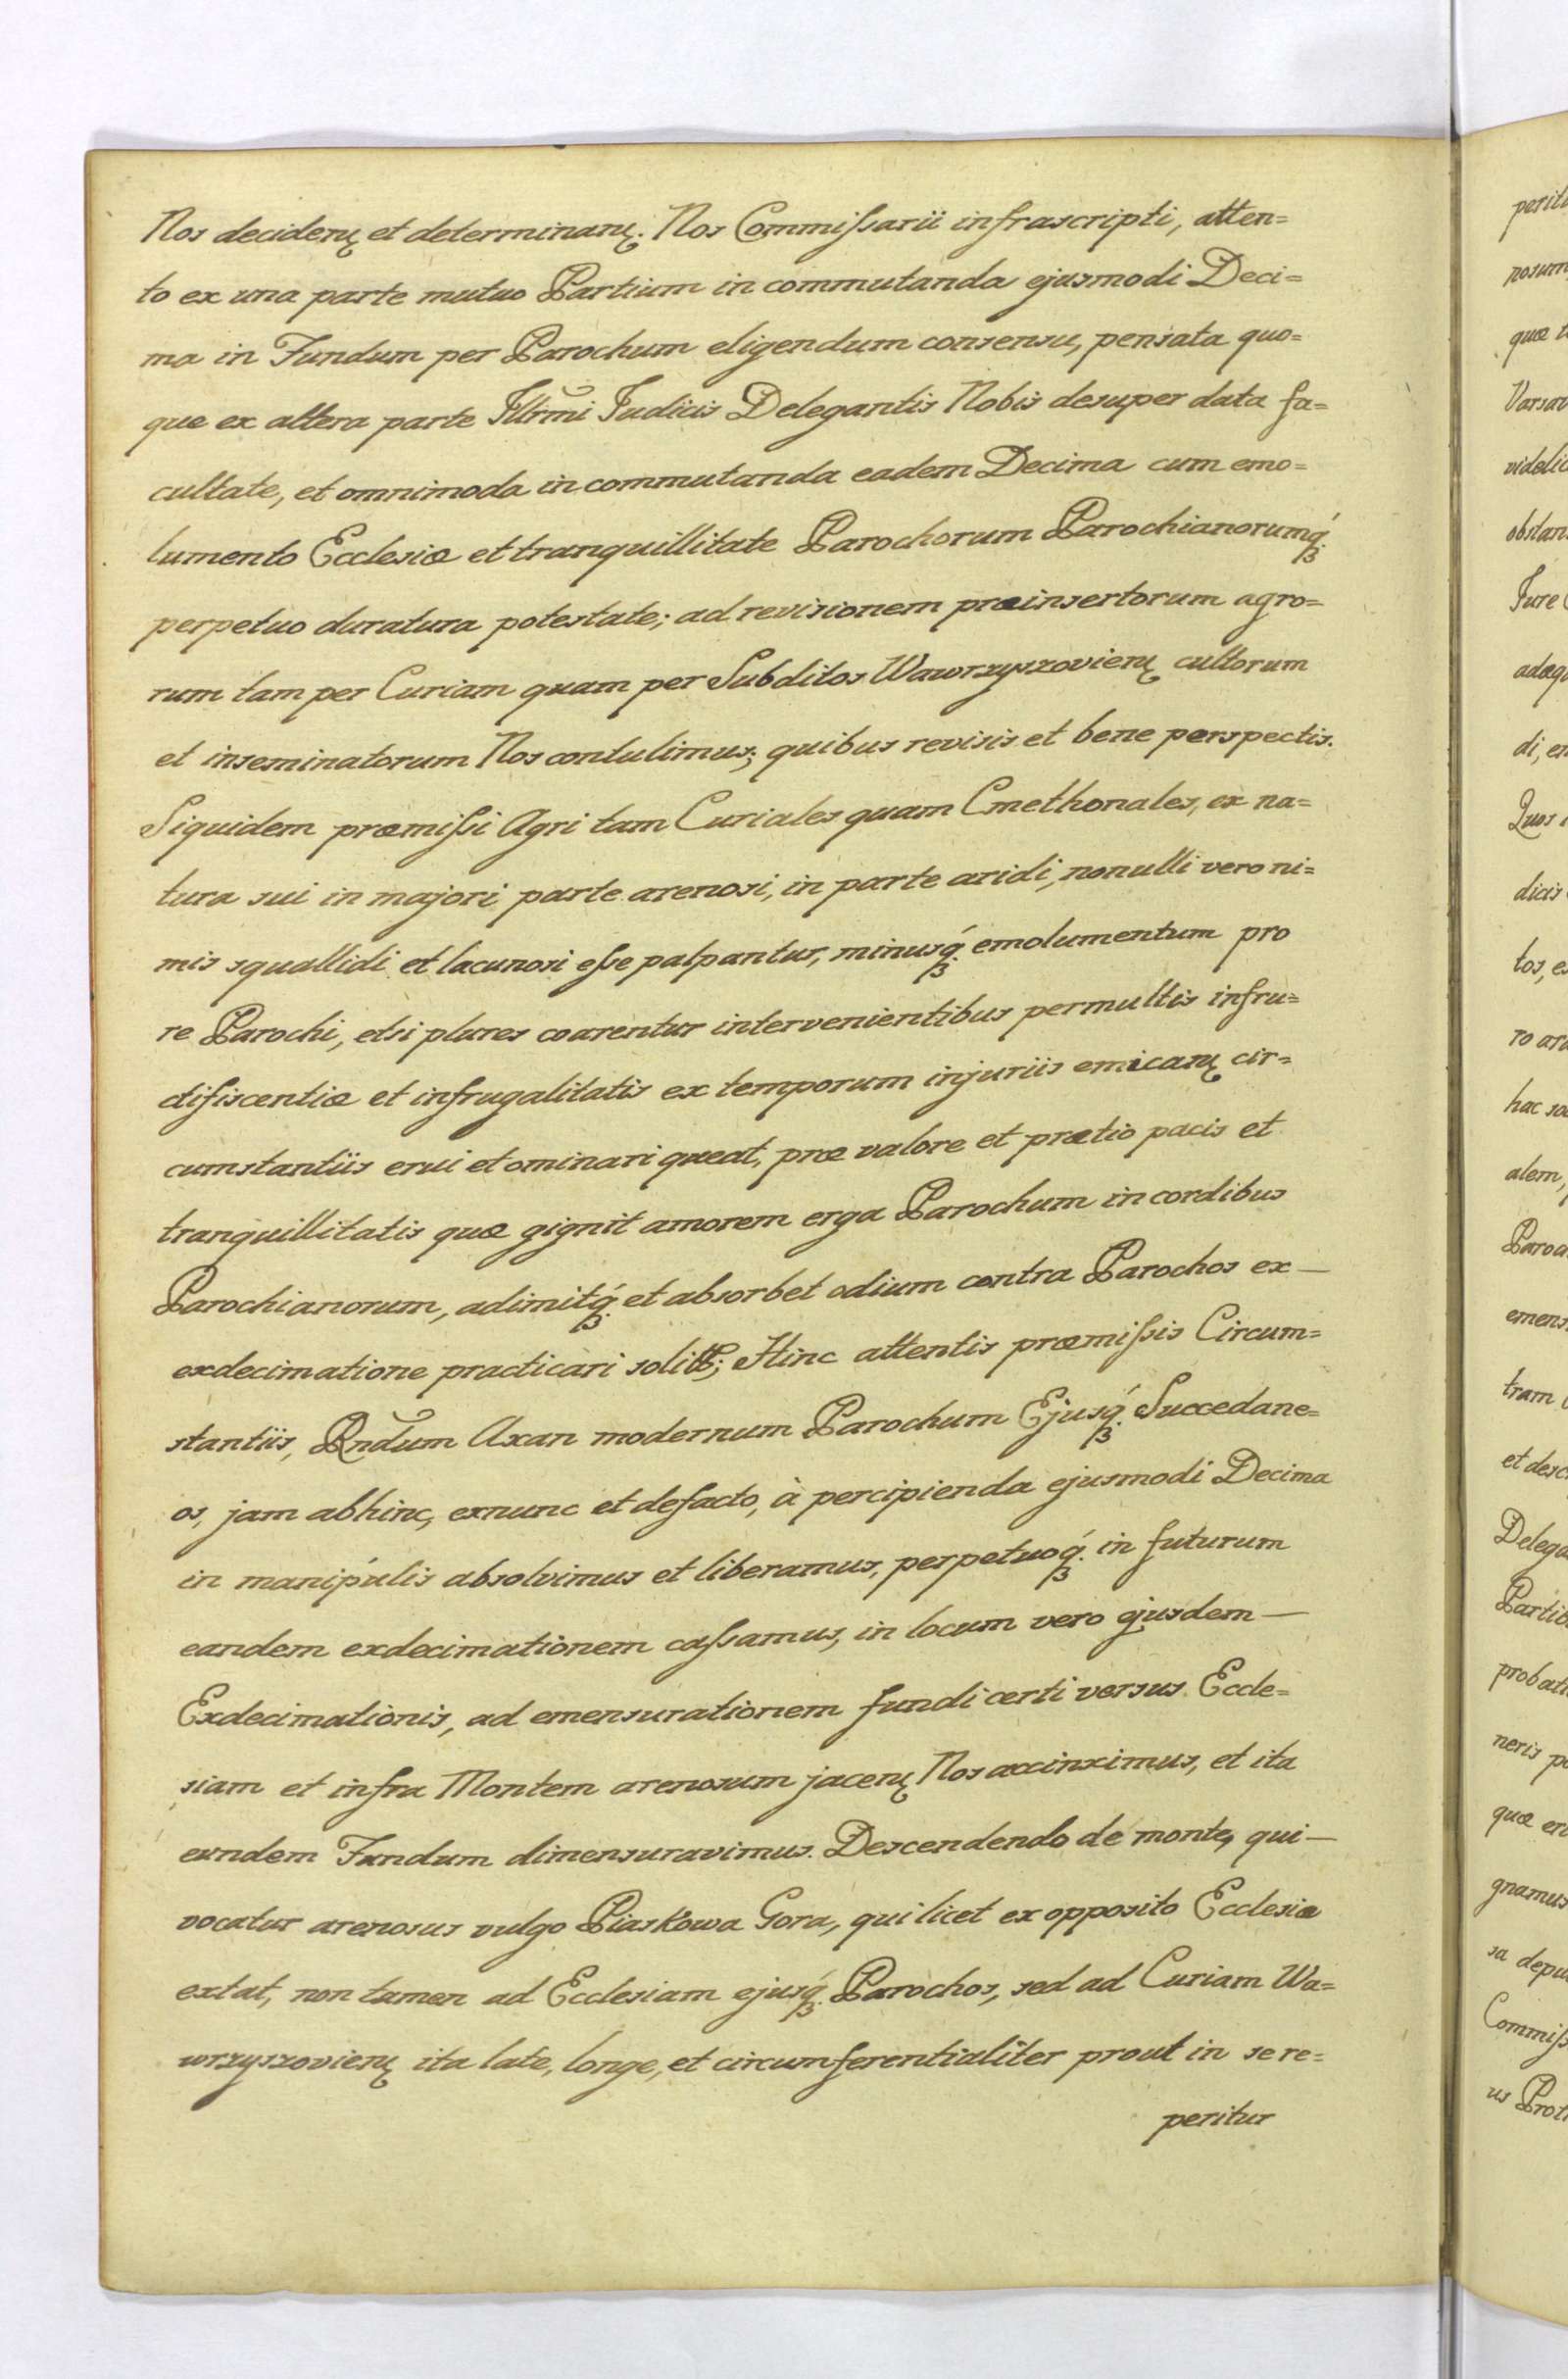 Nos decidenꝝ et determinanꝝ. Nos Commiſsarii infrascripti, atten=
to ex una parte mutuo Partium in commutanda ejusmodi Deci=
ma in Fundum per Parochum eligendum consensu, pensata quo=
que ex altera parte Illrmi Judicis Delegantis Nobis desuper data fa=
cultate, et omnimoda in commutanda eadem Decima cum emo=
lumento Ecclesiæ et tranquillitate Parochorum Parochianorumq́ꝫ
perpetuo duratura potestate; ad revisionem præinsertorum agro=
rum tam per Curiam quam per Subditos Wawrzyszovienꝝ cultorum
et inseminatorum Nos contulimus; quibus revisis et bene perspectis.
Siquidem præmiſsi Agri tam Curiales quam Cmethonales, ex na=
tura sui in majori parte arenosi, in parte aridi, nonulli vero ni=
mis squallidi et lacunosi eſse palpantur, minusq́ꝫ emolumentum pro
re Parochi, etsi plures coarentur intervenientibus permultis infru=
ctifiscentiæ et infrugalitatis ex temporum injuriis emicanꝝ cir=
cumstantiis erui et ominari queat, præ valore et prætio pacis et
tranquillitatis quæ gignit amorem erga Parochum in cordibus
Parochianorum, adimitq́ꝫ et absorbet odium contra Parochos ex—
exdecimatione practicari solitt; Hinc attentis præmiſsis Circum=
stantiis, Rndum Axan modernum Parochum Ejusq́ꝫ Succedane=
os, jam abhinc, exnunc et defacto, à percipienda ejusmodi Decima
in manipulis absolvimus et liberamus, perpetuoq́ꝫ in futurum
eandem exdecimationem caſsamus, in locum vero ejusdem—
Exdecimationis, ad emensurationem fundi certi versus Eccle=
siam et infra Montem arenosum jacenꝝ Nos accinximus, et ita
eundem Fundum dimensuravimus. Descendendo de monte, qui—
vocatur arenosus vulgo Piaskowa Gora, qui licet ex opposito Ecclesiæ
extat, non tamen ad Ecclesiam ejusq́ꝫ Parochos, sed ad Curiam Wa=
wrzyszovienꝝ ita late, longe, et circumferentialiter prout in se re=
peritur